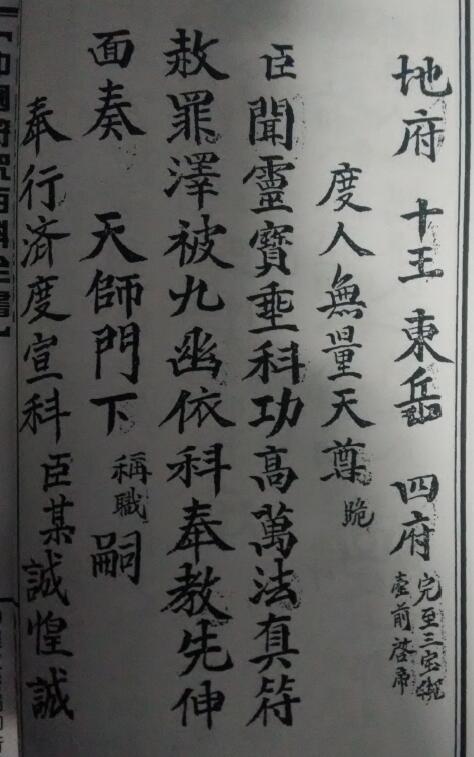 地府 十王 東岳 四府 完至三宝殿臺前啓奏
度人無量天尊 跪
臣聞靈寶垂科功高萬法真符
赦罪澤被九幽依科奉教先伸
面奏 天師門下 稱職 嗣
奉行済度宣科臣某誠惶誠